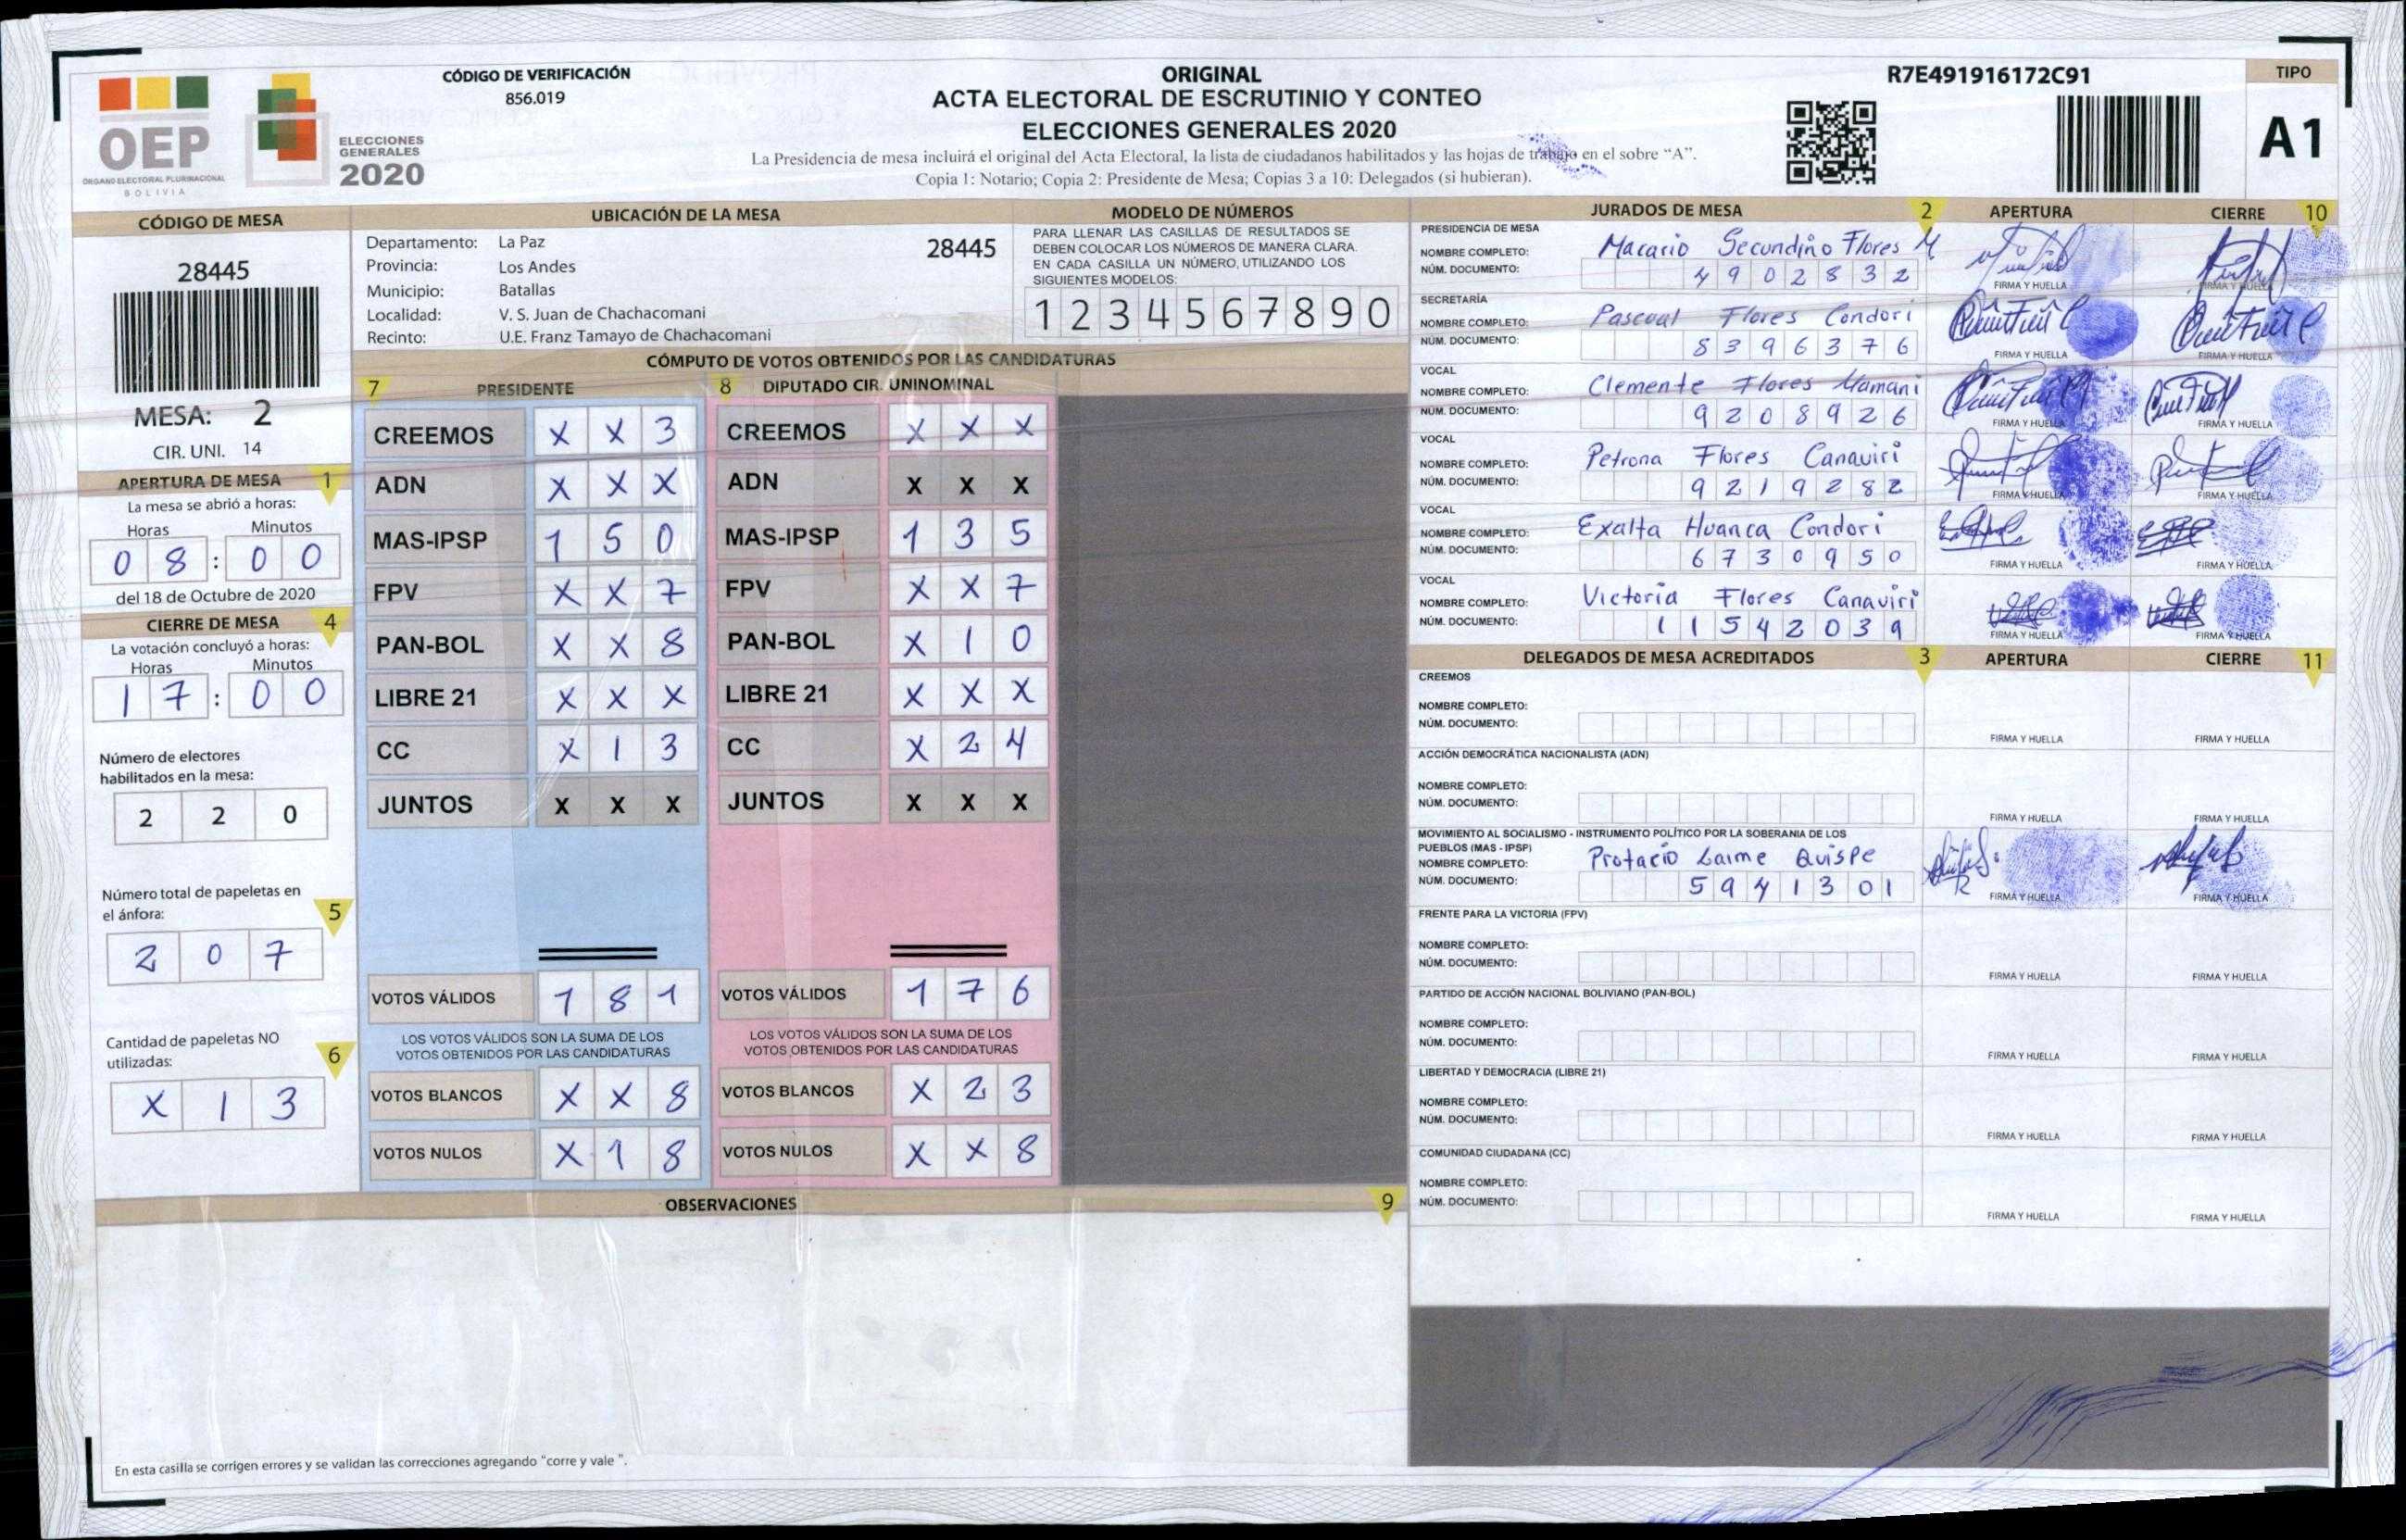 CÓDIGO DE VERIFICACIÓN
856.019
ORIGINAL
ACTA ELECTORAL DE ESCRUTINIO Y CONTEO
ELECCIONES GENERALES 2020
La Presidencia de mesa incluirá el original del Acta Electoral, la lista de ciudadanos habilitados y las hojas de trabajo en el sobre “A”.
Copia 1: Notario; Copia 2: Presidente de Mesa; Copias 3 a 10: Delegados (si hubieran).
R7E491916172C91
TIPO
A1
OEP
ÓRGANO ELECTORAL PLURINACIONAL
BOLIVIA
ELECCIONES
GENERALES
2020
CÓDIGO DE MESA
28445
MESA: 2
CIR. UNI. 14
APERTURA DE MESA 1
La mesa se abrió a horas:
Horas Minutos
0 8 : 0 0
del 18 de Octubre de 2020
CIERRE DE MESA 4
La votación concluyó a horas:
Horas Minutos
1 7 : 0 0
Número de electores
habilitados en la mesa:
2 2 0
Número total de papeletas en
el ánfora: 5
2 0 7
Cantidad de papeletas NO
utilizadas: 6
X 1 3
UBICACIÓN DE LA MESA
Departamento: La Paz 28445
Provincia: Los Andes
Municipio: Batallas
Localidad: V. S. Juan de Chachacomani
Recinto: U.E. Franz Tamayo de Chachacomani
MODELO DE NÚMEROS
PARA LLENAR LAS CASILLAS DE RESULTADOS SE
DEBEN COLOCAR LOS NÚMEROS DE MANERA CLARA.
EN CADA CASILLA UN NÚMERO, UTILIZANDO LOS
SIGUIENTES MODELOS:
1 2 3 4 5 6 7 8 9 0
CÓMPUTO DE VOTOS OBTENIDOS POR LAS CANDIDATURAS
7 PRESIDENTE
CREEMOS X X 3
ADN X X X
MAS-IPSP 1 5 0
FPV X X 7
PAN-BOL X X 8
LIBRE 21 X X X
CC X 1 3
JUNTOS X X X
VOTOS VÁLIDOS 1 8 1
LOS VOTOS VÁLIDOS SON LA SUMA DE LOS
VOTOS OBTENIDOS POR LAS CANDIDATURAS
VOTOS BLANCOS X X 8
VOTOS NULOS X 1 8
8 DIPUTADO CIR. UNINOMINAL
CREEMOS X X X
ADN X X X
MAS-IPSP 1 3 5
FPV X X 7
PAN-BOL X 1 0
LIBRE 21 X X X
CC X 2 4
JUNTOS X X X
VOTOS VÁLIDOS 1 7 6
LOS VOTOS VÁLIDOS SON LA SUMA DE LOS
VOTOS OBTENIDOS POR LAS CANDIDATURAS
VOTOS BLANCOS X 2 3
VOTOS NULOS X X 8
OBSERVACIONES 9
En esta casilla se corrigen errores y se validan las correcciones agregando "corre y vale ".
JURADOS DE MESA 2 APERTURA CIERRE 10
PRESIDENCIA DE MESA
NOMBRE COMPLETO: Macario Secundino Flores M
NÚM. DOCUMENTO: 4 9 0 2 8 3 2
FIRMA Y HUELLA FIRMA Y HUELLA
SECRETARÍA
NOMBRE COMPLETO: Pascual Flores Condori
NÚM. DOCUMENTO: 8 3 9 6 3 7 6
FIRMA Y HUELLA FIRMA Y HUELLA
VOCAL
NOMBRE COMPLETO: Clemente Flores Mamani
NÚM. DOCUMENTO: 9 2 0 8 9 2 6
FIRMA Y HUELLA FIRMA Y HUELLA
VOCAL
NOMBRE COMPLETO: Petrona Flores Canaviri
NÚM. DOCUMENTO: 9 2 1 9 2 8 2
FIRMA Y HUELLA FIRMA Y HUELLA
VOCAL
NOMBRE COMPLETO: Exalta Huanca Condori
NÚM. DOCUMENTO: 6 7 3 0 9 5 0
FIRMA Y HUELLA FIRMA Y HUELLA
VOCAL
NOMBRE COMPLETO: Victoria Flores Canaviri
NÚM. DOCUMENTO: 1 1 5 4 2 0 3 9
FIRMA Y HUELLA FIRMA Y HUELLA
DELEGADOS DE MESA ACREDITADOS 3 APERTURA CIERRE 11
CREEMOS
NOMBRE COMPLETO:
NÚM. DOCUMENTO:
FIRMA Y HUELLA FIRMA Y HUELLA
ACCIÓN DEMOCRÁTICA NACIONALISTA (ADN)
NOMBRE COMPLETO:
NÚM. DOCUMENTO:
FIRMA Y HUELLA FIRMA Y HUELLA
MOVIMIENTO AL SOCIALISMO - INSTRUMENTO POLÍTICO POR LA SOBERANIA DE LOS
PUEBLOS (MAS - IPSP)
NOMBRE COMPLETO: Protacio Laime Quispe
NÚM. DOCUMENTO: 5 9 4 1 3 0 1
FIRMA Y HUELLA FIRMA Y HUELLA
FRENTE PARA LA VICTORIA (FPV)
NOMBRE COMPLETO:
NÚM. DOCUMENTO:
FIRMA Y HUELLA FIRMA Y HUELLA
PARTIDO DE ACCIÓN NACIONAL BOLIVIANO (PAN-BOL)
NOMBRE COMPLETO:
NÚM. DOCUMENTO:
FIRMA Y HUELLA FIRMA Y HUELLA
LIBERTAD Y DEMOCRACIA (LIBRE 21)
NOMBRE COMPLETO:
NÚM. DOCUMENTO:
FIRMA Y HUELLA FIRMA Y HUELLA
COMUNIDAD CIUDADANA (CC)
NOMBRE COMPLETO:
NÚM. DOCUMENTO:
FIRMA Y HUELLA FIRMA Y HUELLA